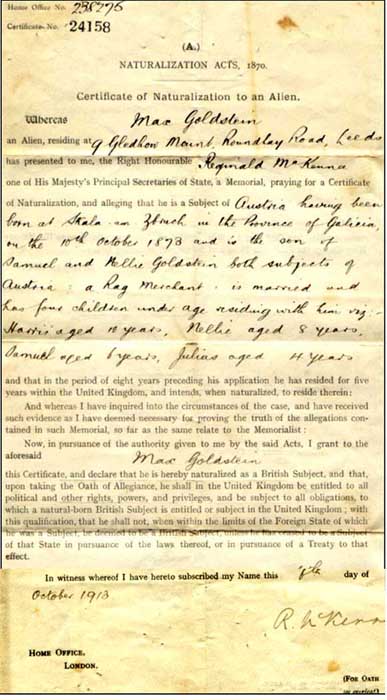 Home Office No. 238276
Certificate No. 24158
(A.)
NATURALIZATION ACTS, 1870.
Certificate of Naturalization to an Alien.
Whereas Max Goldstein
an Alien, residing at 9 Gledhow Mount, Roundlay Road, Leeds
has presented to me, the Right Honourable Reginald McKenna
one of His Majesty's Principal Secretaries of State, a Memorial, praying for a Certificate
of Naturalization, and alleging that he is a Subject of Austria having been
born at Skala am Zbruch in the Province of Galicia,
on the 10th October 1873 and is the son of
Samuel and Nellie Goldstein both subjects of
Austria: a Rag Merchant: is married and
has four children under age residing with him viz:-
Harris aged 10 years, Nellie aged 8 years,
Samuel aged 6 years, Julius aged 4 years
and that in the period of eight years preceding his application he has resided for five
years within the United Kingdom, and intends, when naturalized, to reside therein:
And whereas I have inquired into the circumstances of the case, and have received
such evidence as I have deemed necessary for proving the truth of the allegations con-
tained in such Memorial, so far as the same relate to the Memorialist:
Now, in pursuance of the authority given to me by the said Acts, I grant to the
aforesaid Max Goldstein
this Certificate, and declare that he is hereby naturalized as a British Subject, and that,
upon taking the Oath of Allegiance, he shall in the United Kingdom be entitled to all
political and other rights, powers, and privileges, and be subject to all obligations, to
which a natural-born British Subject is entitled or subject in the United Kingdom; with
this qualification, that he shall not, when within the limits of the Foreign State of which
he was a Subject, be deemed to be a British Subject, unless he has ceased to be a Subject
of that State in pursuance of the laws thereof, or in pursuance of a Treaty to that
effect.
In witness whereof I have hereto subscribed my Name this day of
October 1913
R. McKenn
HOME OFFICE,
LONDON.
(FOR OATH